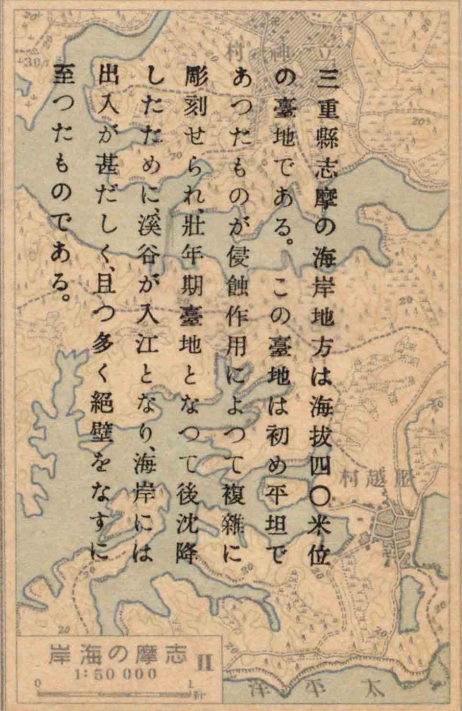 三重縣志摩の海岸地方は海拔四〇米位
の臺地である。この臺地は初め平坦で
あつたものが侵蝕作用によつて複雜に
彫刻せられ、壯年期臺地となつて後沈降
したために、溪谷が入江となり、海岸には
出入が甚だしく、且つ多く絕壁をなすに
至つたものである。
立神村
越村
太平洋
志摩の海岸 II
1:50 000
0 1